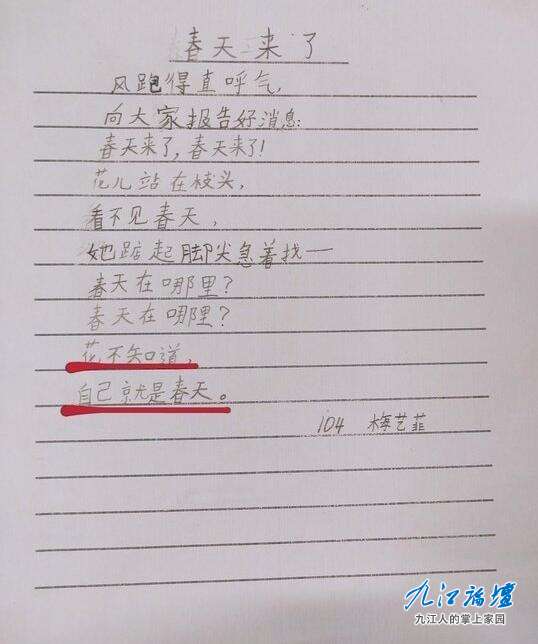 春天来了
风跑得直呼气，
向大家报告好消息：
春天来了，春天来了！
花儿站在枝头，
看不见春天，
她踮起脚尖急着找一
春天在哪里？
春天在哪里？
花不知道，
自己就是春天。
104 梅艺菲
九江论坛
九江人的掌上家园